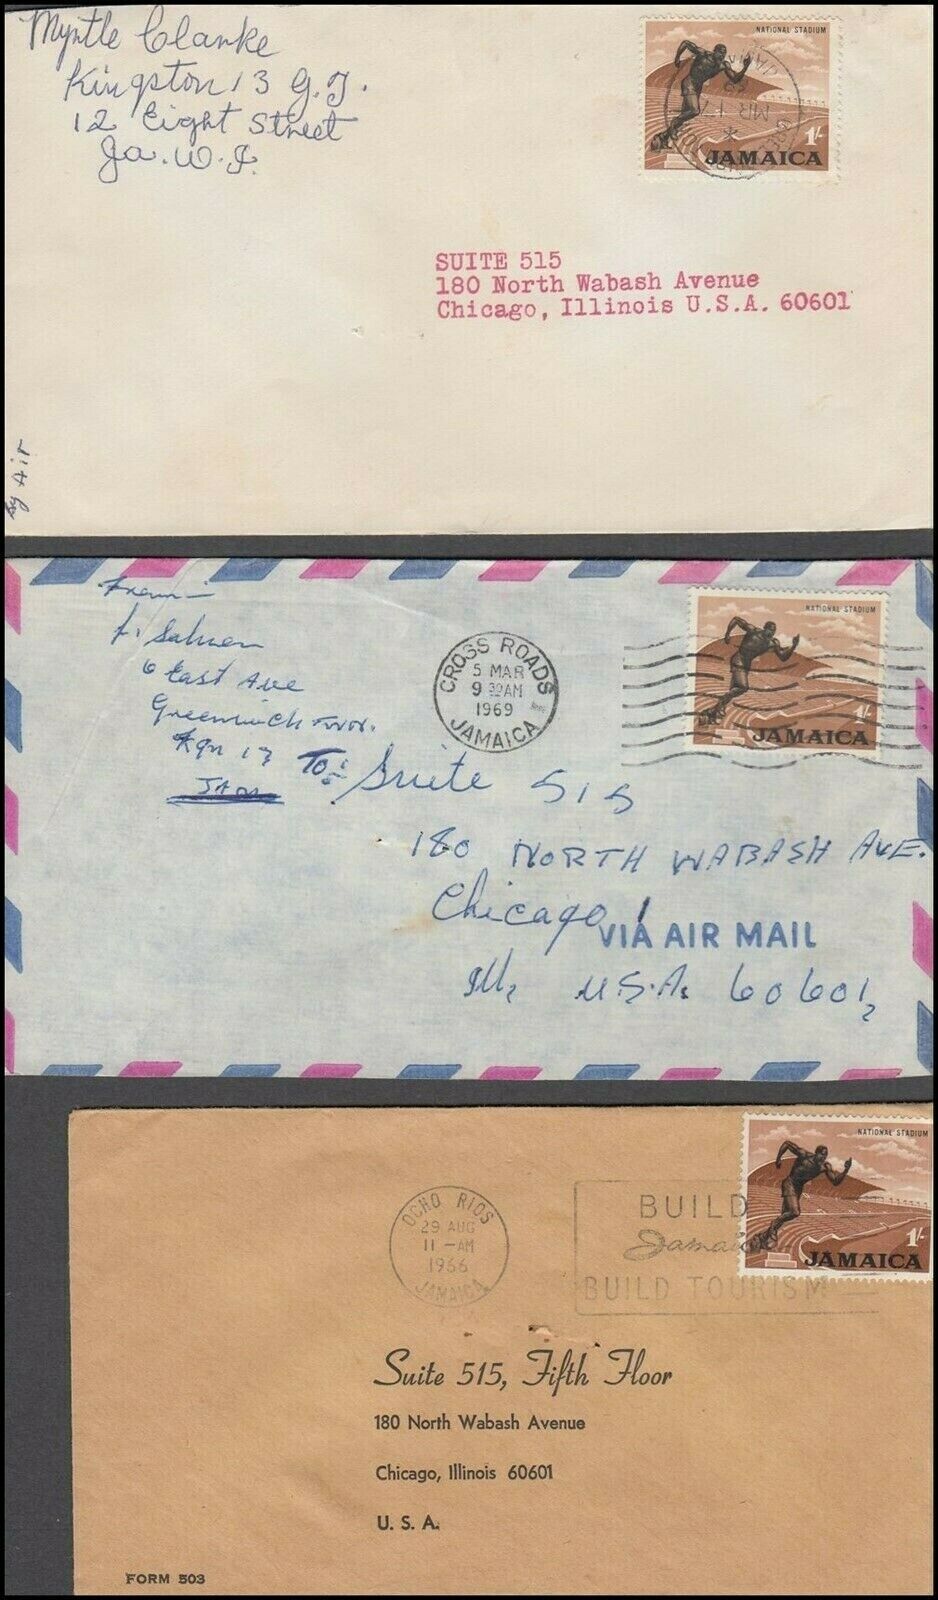 Myrtle Clarke
Kingston 13 G.T.
12 Eight Street
Ja. W. I.
NATIONAL STADIUM
MR 17
1/-
JAMAICA
SUITE 515
180 North Wabash Avenue
Chicago, Illinois U.S.A. 60601
By Air
From
6 East Ave
Greenwich
Kgn 13
To:
CROSS ROADS
5 MAR
9 30 AM
1969
JAMAICA
NATIONAL STADIUM
1/-
JAMAICA
Suite 515
180 NORTH WABASH AVE.
Chicago 1
VIA AIR MAIL
Ill, U.S.A. 60601,
OCHO RIOS
29 AUG
11 -AM
1966
JAMAICA
BUILD
Jamaica
BUILD TOURISM
NATIONAL STADIUM
1/-
JAMAICA
Suite 515, Fifth Floor
180 North Wabash Avenue
Chicago, Illinois 60601
U. S. A.
FORM 503